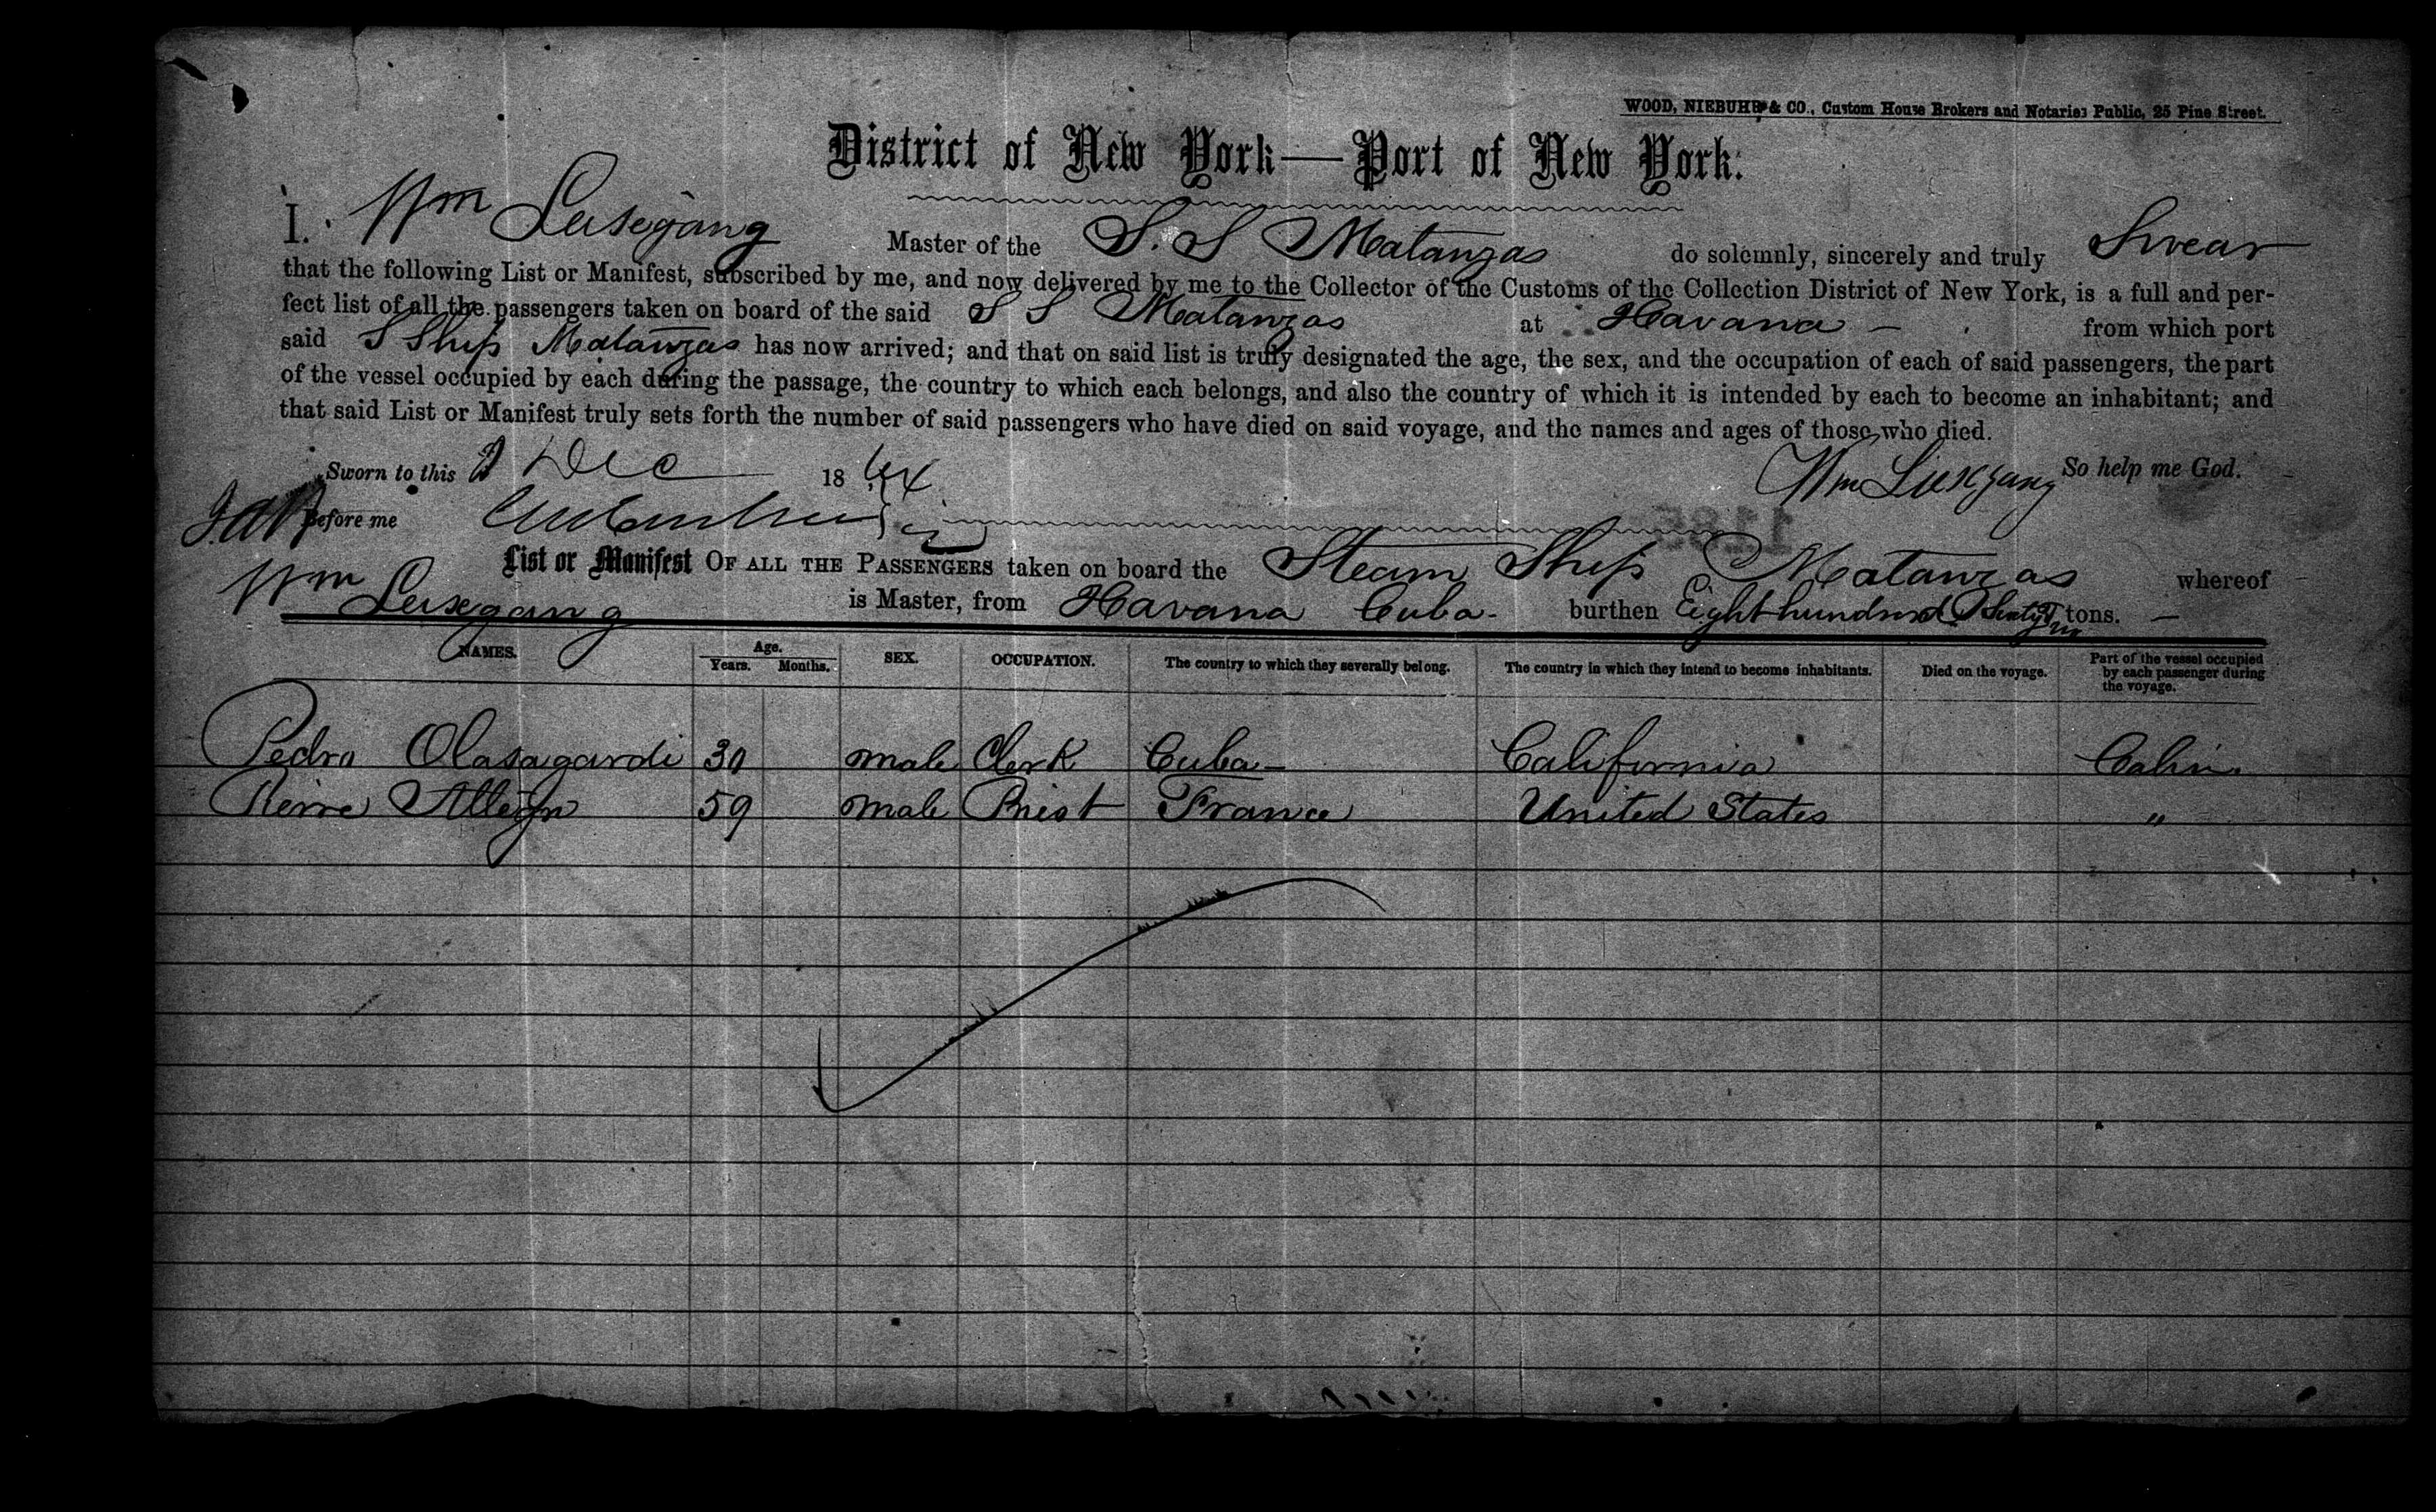 WOOD, NIEBUHR & CO., Custom House Brokers and Notaries Public, 25 Pine Street.
District of New York—Port of New York.
I. Wm Lusegang Master of the S. S Matanzas do solemnly, sincerely and truly Swear
that the following List or Manifest, subscribed by me, and now delivered by me to the Collector of the Customs of the Collection District of New York, is a full and per-
fect list of all the passengers taken on board of the said S S Matanzas at Havana – from which port
said S Ship Matanzas has now arrived; and that on said list is truly designated the age, the sex, and the occupation of each of said passengers, the part
of the vessel occupied by each during the passage, the country to which each belongs, and also the country of which it is intended by each to become an inhabitant; and
that said List or Manifest truly sets forth the number of said passengers who have died on said voyage, and the names and ages of those who died.
Sworn to this Dec 1864 Wm So help me God.
Before me
1185
List or Manifest OF ALL THE PASSENGERS taken on board the Steam Ship Matanzas whereof
Wm Lusegang is Master, from Havana Cuba - burthen Eight hundred & tons. –
NAMES. Age. Years. Months. SEX. OCCUPATION. The country to which they severally belong. The country in which they intend to become inhabitants. Died on the voyage. Part of the vessel occupied by each passenger during the voyage.
Pedro Olasagardi 30 male Clerk Cuba – California Cabin
Pierre 59 male Priest France United States "